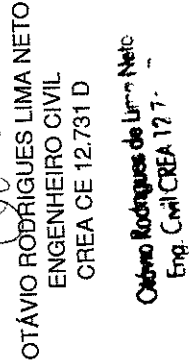 OTÁVIO RODRIGUES LIMA NETO
ENGENHEIRO CIVIL
CREA CE 12.731 D
Otávio Rodrigues de Lima Neto
Eng. Civil CREA 12.7